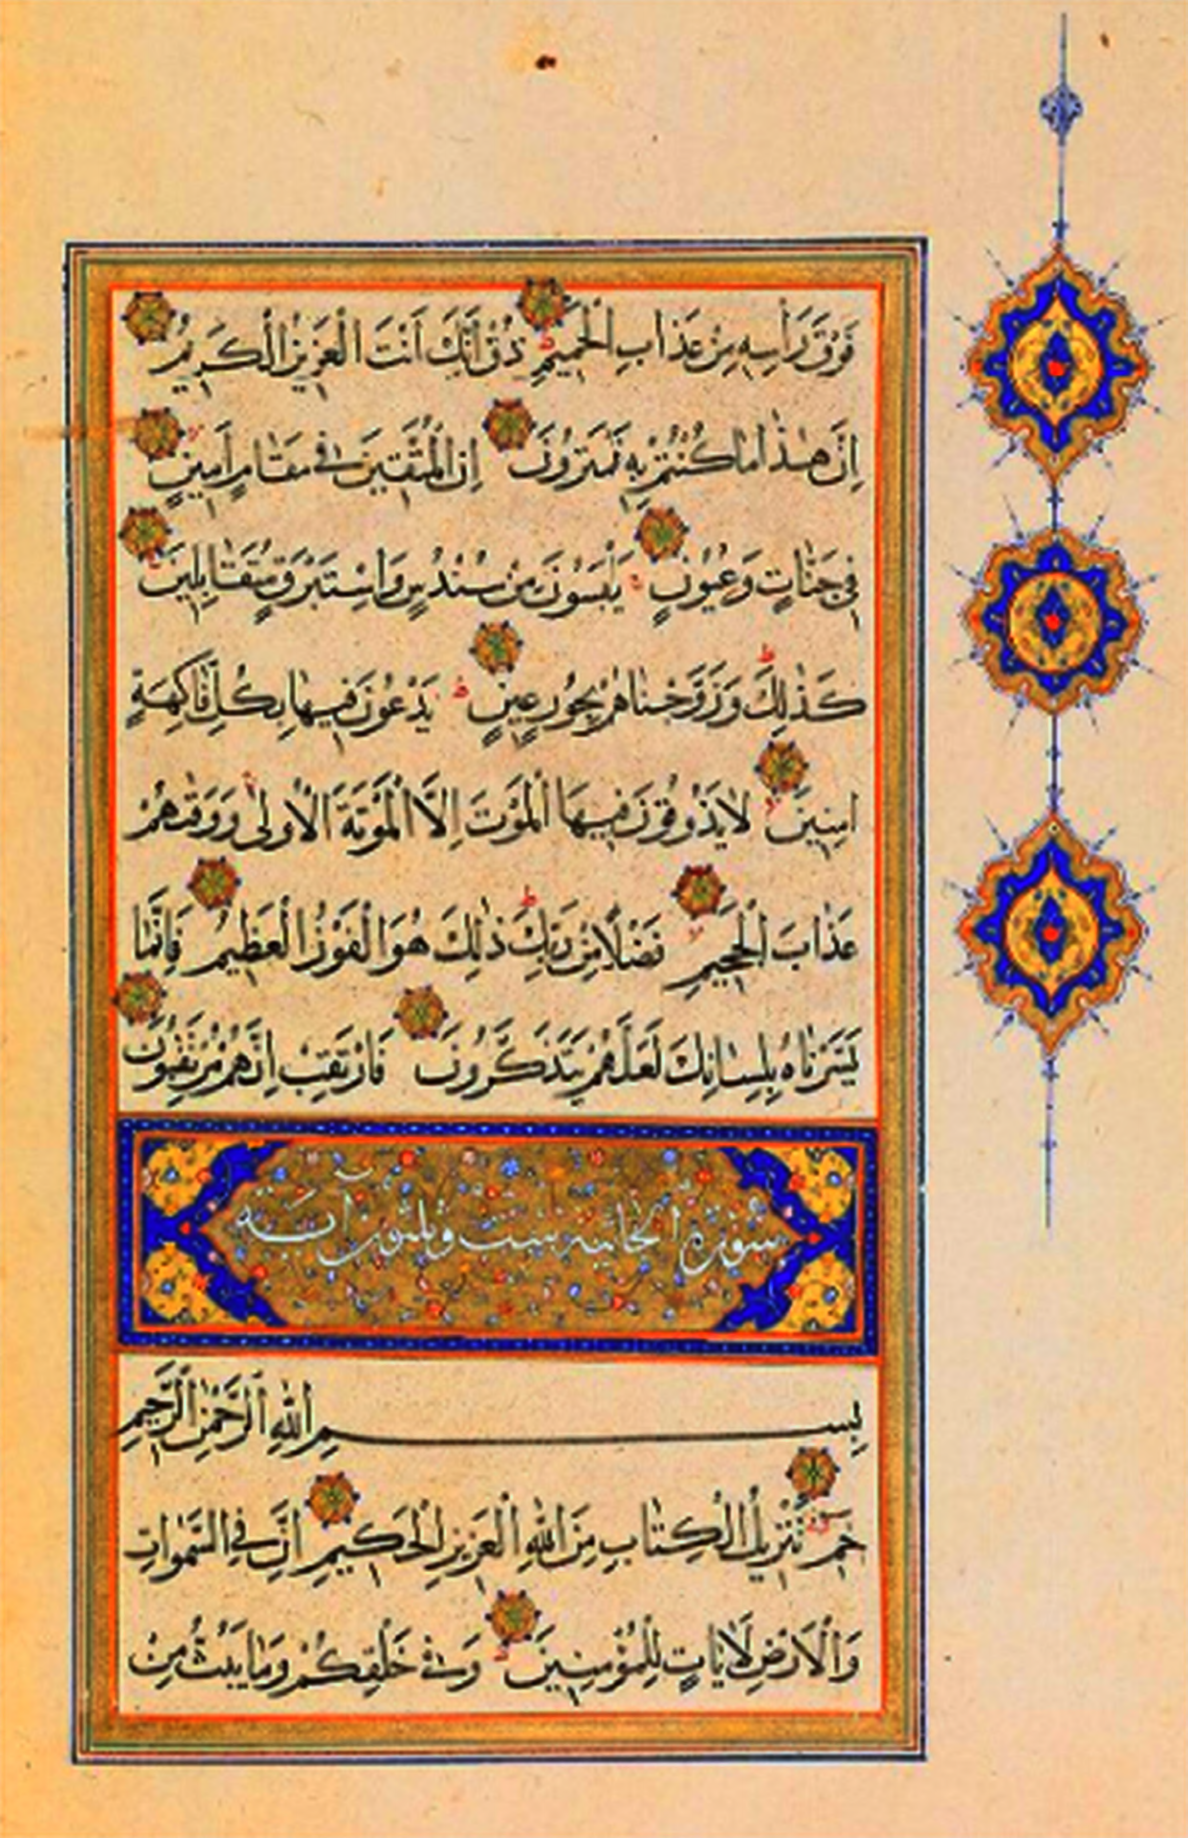 فَوْقَ رَأْسِهِ مِنْ عَذَابِ الْحَمِيمِ ذُقْ اِنَّكَ اَنْتَ الْعَزِيزُ الْكَرِيمُ
اِنَّ هٰذَا مَا كُنْتُمْ بِهِ تَمْتَرُونَ اِنَّ الْمُتَّقِينَ فِي مَقَامٍ اَمِينٍ
فِي جَنَّاتٍ وَعُيُونٍ يَلْبَسُونَ مِنْ سُنْدُسٍ وَاِسْتَبْرَقٍ مُتَقَابِلِينَ
كَذٰلِكَ وَزَوَّجْنَاهُمْ بِحُورٍ عِينٍ يَدْعُونَ فِيهَا بِكُلِّ فَاكِهَةٍ
اٰمِنِينَ لَا يَذُوقُونَ فِيهَا الْمَوْتَ اِلَّا الْمَوْتَةَ الْاُولٰى وَوَقٰهُمْ
عَذَابَ الْجَحِيمِ فَضْلًا مِنْ رَبِّكَ ذٰلِكَ هُوَ الْفَوْزُ الْعَظِيمُ فَاِنَّمَا
يَسَّرْنَاهُ بِلِسَانِكَ لَعَلَّهُمْ يَتَذَكَّرُونَ فَارْتَقِبْ اِنَّهُمْ مُرْتَقِبُونَ
سورة الجاثية ست وثلثون آية
بِسْمِ اللهِ الرَّحْمٰنِ الرَّحِيمِ
حٰم تَنْزِيلُ الْكِتَابِ مِنَ اللهِ الْعَزِيزِ الْحَكِيمِ اِنَّ فِي السَّمٰوَاتِ
وَالْاَرْضِ لَاٰيَاتٍ لِلْمُؤْمِنِينَ وَفِي خَلْقِكُمْ وَمَا يَبُثُّ مِنْ